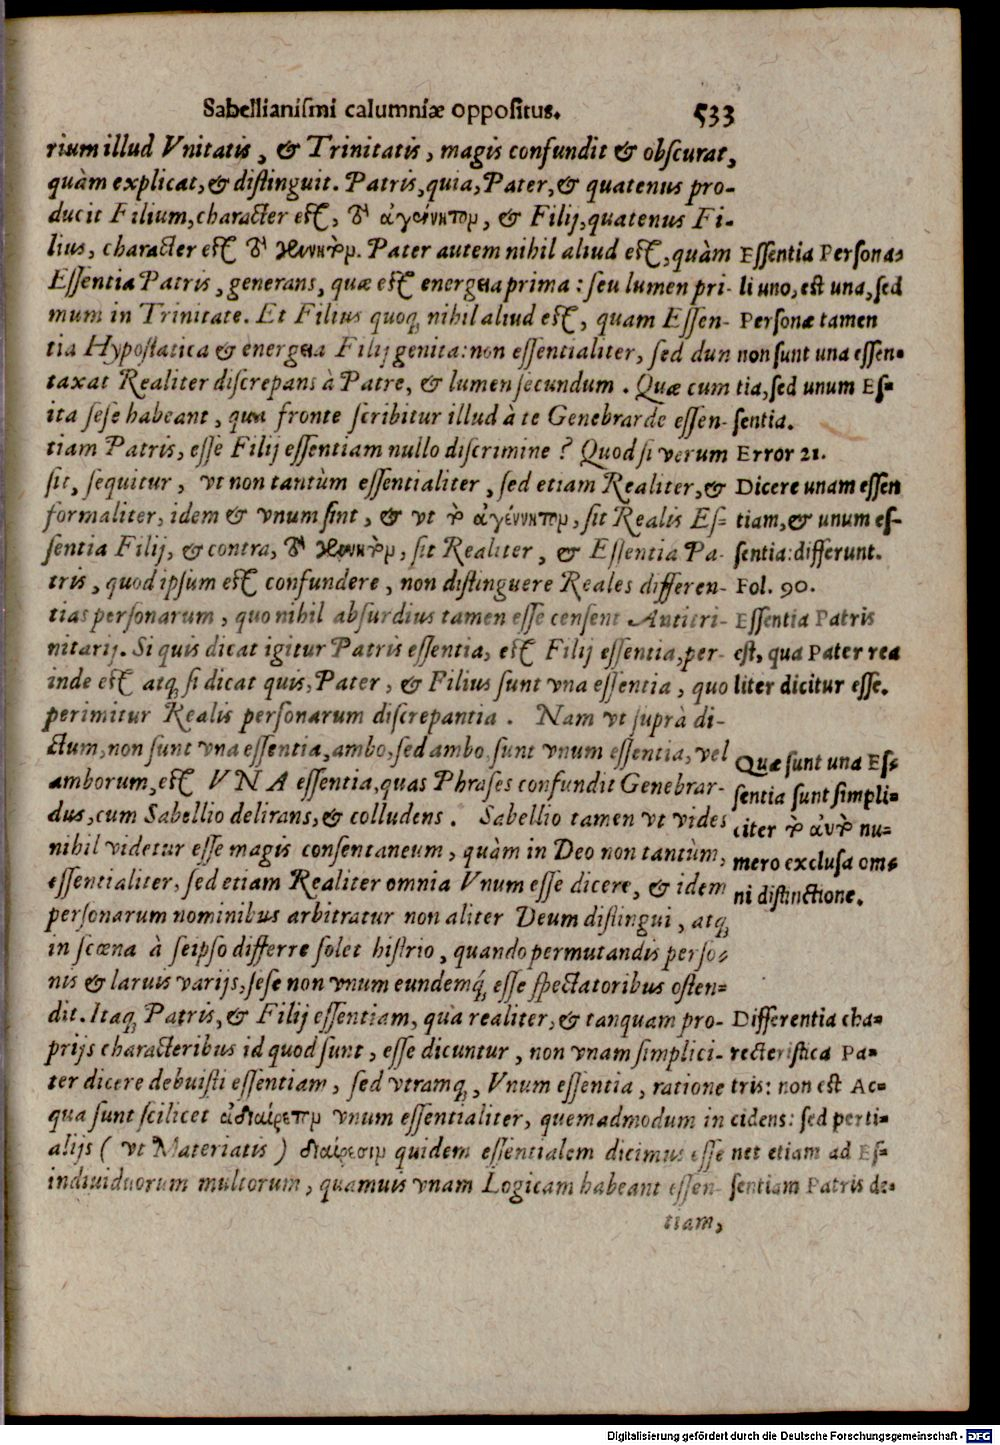 Sabellianiſmi calumniæ oppoſitus. 533
rium illud Vnitatis, & Trinitatis, magis confundit & obſcurat,
quàm explicat, & diſtinguit. Patris, quia, Pater, & quatenus pro-
ducit Filium, character eſt, τὸ ἀγέννητον, & Filij, quatenus Fi-
lius, character eſt τὸ γεννητὸν. Pater autem nihil aliud eſt, quàm
Eſſentia Patris, generans, quæ eſt energeia prima: ſeu lumen pri-
mum in Trinitate. Et Filius quoq; nihil aliud eſt, quam Eſſen-
tia Hypoſtatica & energeia Filij genita: non eſſentialiter, ſed dun
taxat Realiter diſcrepans à Patre, & lumen ſecundum. Quæ cum
ita ſeſe habeant, qua fronte ſcribitur illud à te Genebrarde eſſen-
tiam Patris, eſſe Filij eſſentiam nullo diſcrimine? Quod ſi verum
ſit, ſequitur, vt non tantùm eſſentialiter, ſed etiam Realiter, &
formaliter, idem & vnum ſint, & vt τὸ ἀγέννητον, ſit Realis Eſ-
ſentia Filij, & contra, τὸ γεννητὸν, ſit Realiter, & Eſſentia Pa-
tris, quod ipſum eſt confundere, non diſtinguere Reales differen-
tias perſonarum, quo nihil abſurdius tamen eſſe cenſent Antitri-
nitarij. Si quis dicat igitur Patris eſſentia, eſt Filij eſſentia, per-
inde eſt atq; ſi dicat quis, Pater, & Filius ſunt vna eſſentia, quo
perimitur Realis perſonarum diſcrepantia. Nam vt ſuprà di-
ctum, non ſunt vna eſſentia, ambo, ſed ambo ſunt vnum eſſentia, vel
amborum, eſt VNA eſſentia, quas Phraſes confundit Genebrar-
dus, cum Sabellio delirans, & colludens. Sabellio tamen vt vides
nihil videtur eſſe magis conſentaneum, quàm in Deo non tantùm,
eſſentialiter, ſed etiam Realiter omnia Vnum eſſe dicere, & idem
perſonarum nominibus arbitratur non aliter Deum diſtingui, atq;
in ſcœna à ſeipſo differre ſolet hiſtrio, quando permutandis perſo-
nis & laruis varijs, ſeſe non vnum eundemq́; eſſe ſpectatoribus oſten-
dit. Itaq; Patris, & Filij eſſentiam, quà realiter, & tanquam pro-
prijs characteribus id quod ſunt, eſſe dicuntur, non vnam ſimplici-
ter dicere debuiſti eſſentiam, ſed vtramq;, Vnum eſſentia, ratione
qua ſunt ſcilicet ἀδιαίρετον vnum eſſentialiter, quemadmodum in
alijs (vt Materiatis) διαίρεσιν quidem eſſentialem dicimus eſſe
indiuiduorum multorum, quamuis vnam Logicam habeant eſſen-
tiam,
Eſſentia Perſona-
li uno, eſt una, ſed
Perſonæ tamen
non ſunt una eſſen-
tia, ſed unum Eſ-
ſentia.
Error 21.
Dicere unam eſſen
tiam, & unum eſ-
ſentia: differunt.
Fol. 90.
Eſſentia Patris
eſt, qua Pater rea
liter dicitur eſſe.
Quæ ſunt una Eſ-
ſentia ſunt ſimpli-
citer τὸ ἀυτὸ nu-
mero excluſa om-
ni diſtinctione.
Differentia cha-
recteriſtica Pa-
tris: non eſt Ac-
cidens: ſed perti-
net etiam ad Eſ-
ſentiam Patris de-
Digitalisierung gefördert durch die Deutsche Forschungsgemeinschaft - DFG